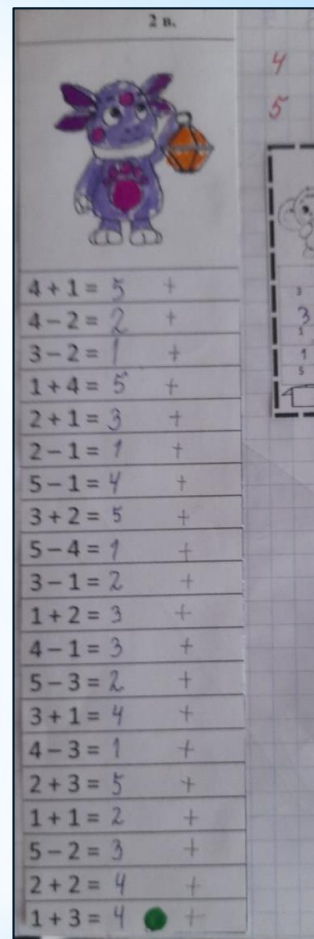 2 в.
4
5
4 + 1 = 5 +
4 − 2 = 2 +
3 − 2 = 1 +
1 + 4 = 5 +
2 + 1 = 3 +
2 − 1 = 1 +
5 − 1 = 4 +
3 + 2 = 5 +
5 − 4 = 1 +
3 − 1 = 2 +
1 + 2 = 3 +
4 − 1 = 3 +
5 − 3 = 2 +
3 + 1 = 4 +
4 − 3 = 1 +
2 + 3 = 5 +
1 + 1 = 2 +
5 − 2 = 3 +
2 + 2 = 4 +
1 + 3 = 4 +
3
3
1
5